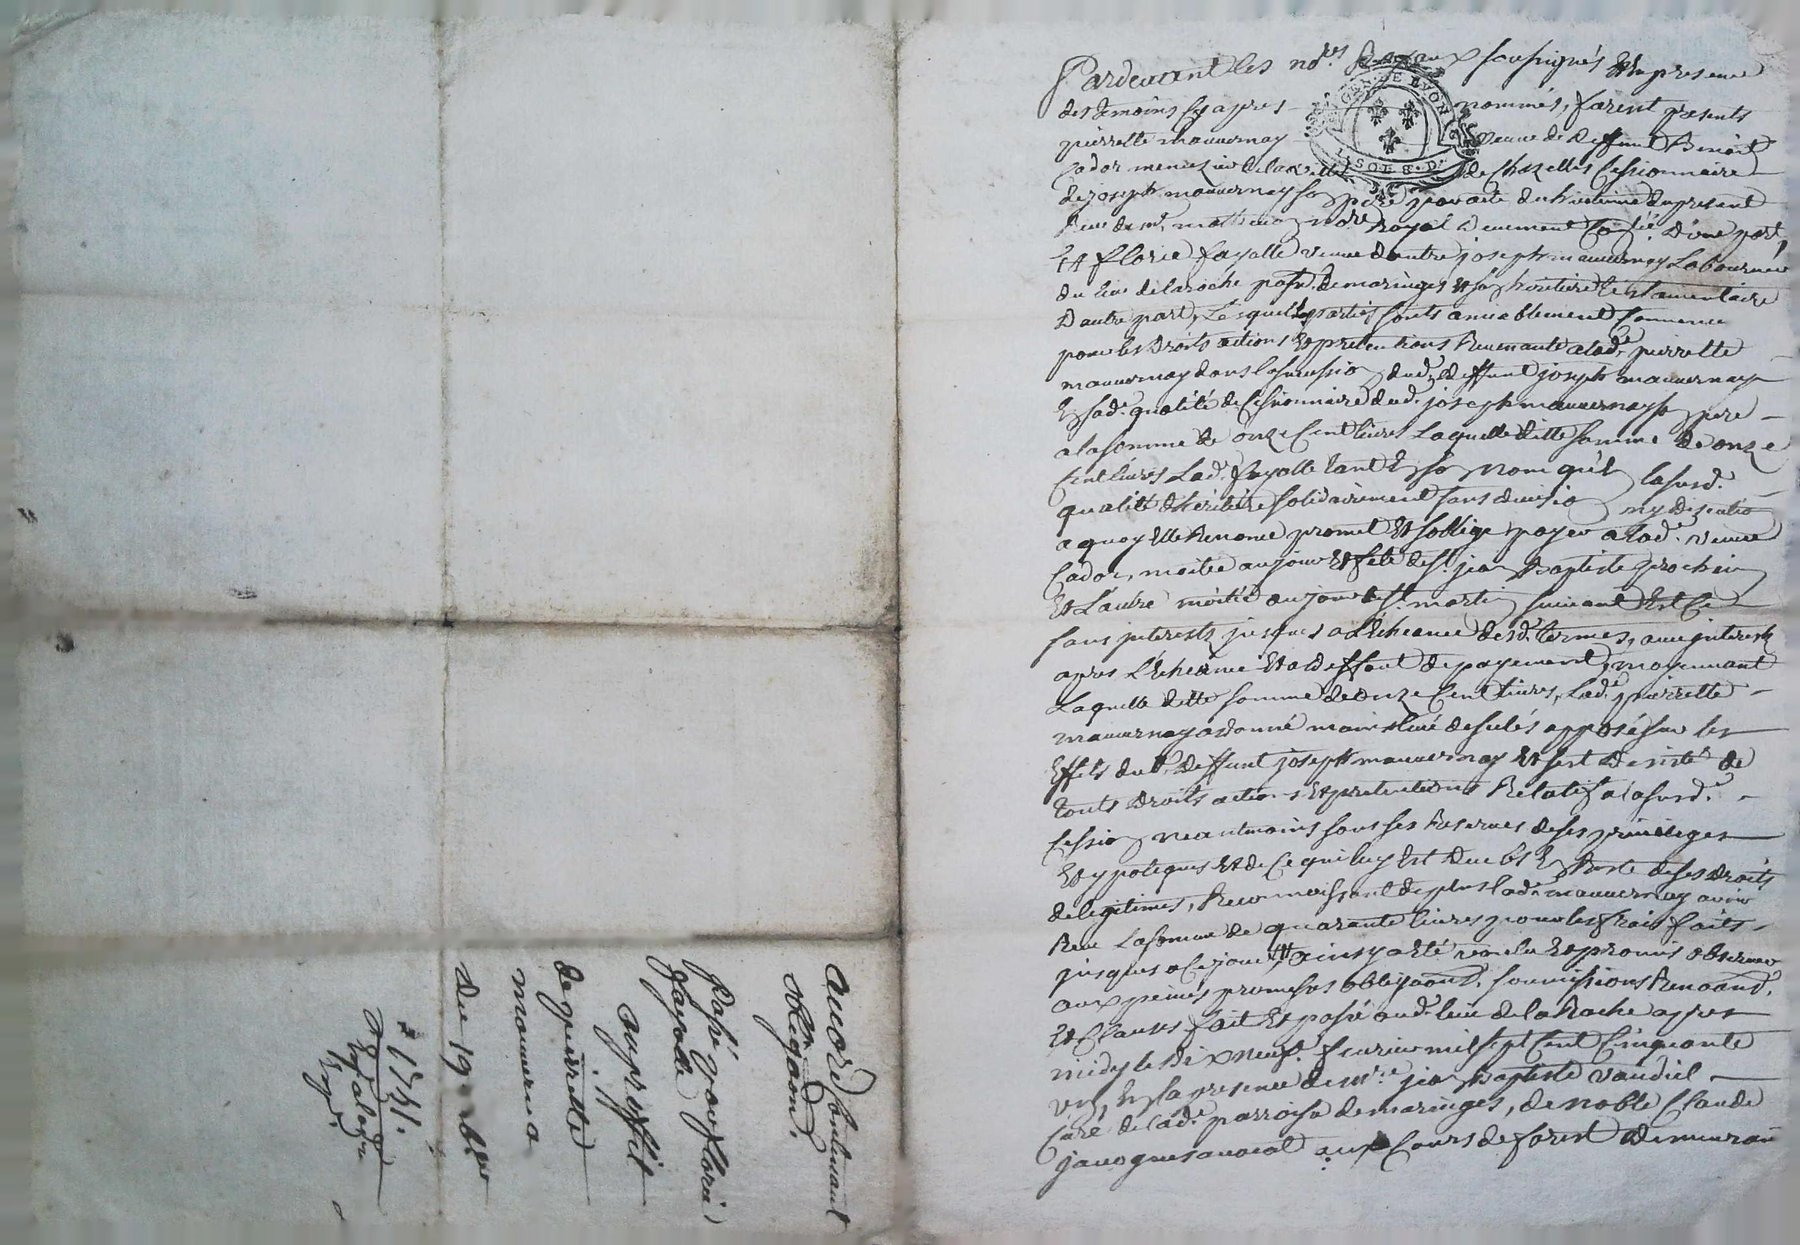 Pardevant les no.res Royaux soussignés Et En presence
des temoins cy apres nommés, furent presents
pierrette mauvernay veuve de deffunt Benoit
Cador de Chazelles Cessionnaire
de joseph mauvernay so pere par acte du huitieme du present
no.re Royal d'une part,
Et florie fayolle veuve d'autre joseph mauvernay Laboureur
du lieu de laroche parr. de maringes Et so heritiere testamentaire
D'autre part, Lesquelles parties sonts amiablement Convenue
pour les droits actions Et pretentions Revenants a lad.e pierrette
mauvernay dans la sucessio dud. deffunt joseph mauvernay
E sad.e qualité de Cessionnaire dud. joseph mauvernay so pere
a la somme de onze Cent livres Laquelle ditte somme de onze
Cent livres Lad. fayolle tant E so nom qu'E lasusd.
qualité d'heritiere solidairement sans divisio ny
a quoy Elle Renonce promet Et soblige payer a lad.e veuve
Cador, moitié au jour Et fete de s.t jea Baptiste prochain
Et L'autre moitié au jour de s.t marti suivant Et Ce
sans interests jusques a L'Echeance desd. termes, avec interests
apres L'Echeance Et a deffaut de payement, moyennant
Laquelle ditte somme de onze Cent livres, Lad.e pierrette
mauvernay a donné main levé de scelés apposé sur les
Effets dud. deffunt joseph mauvernay Et sest desisté de
touts droits actions Et pretentions Relatifs a lasusd.e
Cessio neantmoins sous ses Reserves de ses privileges
Et ypoteques Et de Ce qui luy Est due E Reste de ses droits
de legitimes, Reconnoissant de plus lad.e mauvernay avoir
Receu La somme de quarante livres pour les frais faits
jusques a Ce jour, ainsy a Eté voulu Et promis observer
aux peines promesses obligaons. soumissions Renoaons.
Et Clauses fait Et passé aud. lieu de la Roche apres
midy le dixneuf. fevrier mil sept Cent Cinquante
un, En la presence de m.re jea Baptiste
Curé de lad.e parroisse de maringes, de noble Claude
jacques avocat aux Cours de forest demeurant
GEN. DE LYON
2. SOLS. 8. D.
accord Contenant
obligaon.
Passé par florie
fayolle
au proffit
de pierrette
mauverna
Du 19
1751.